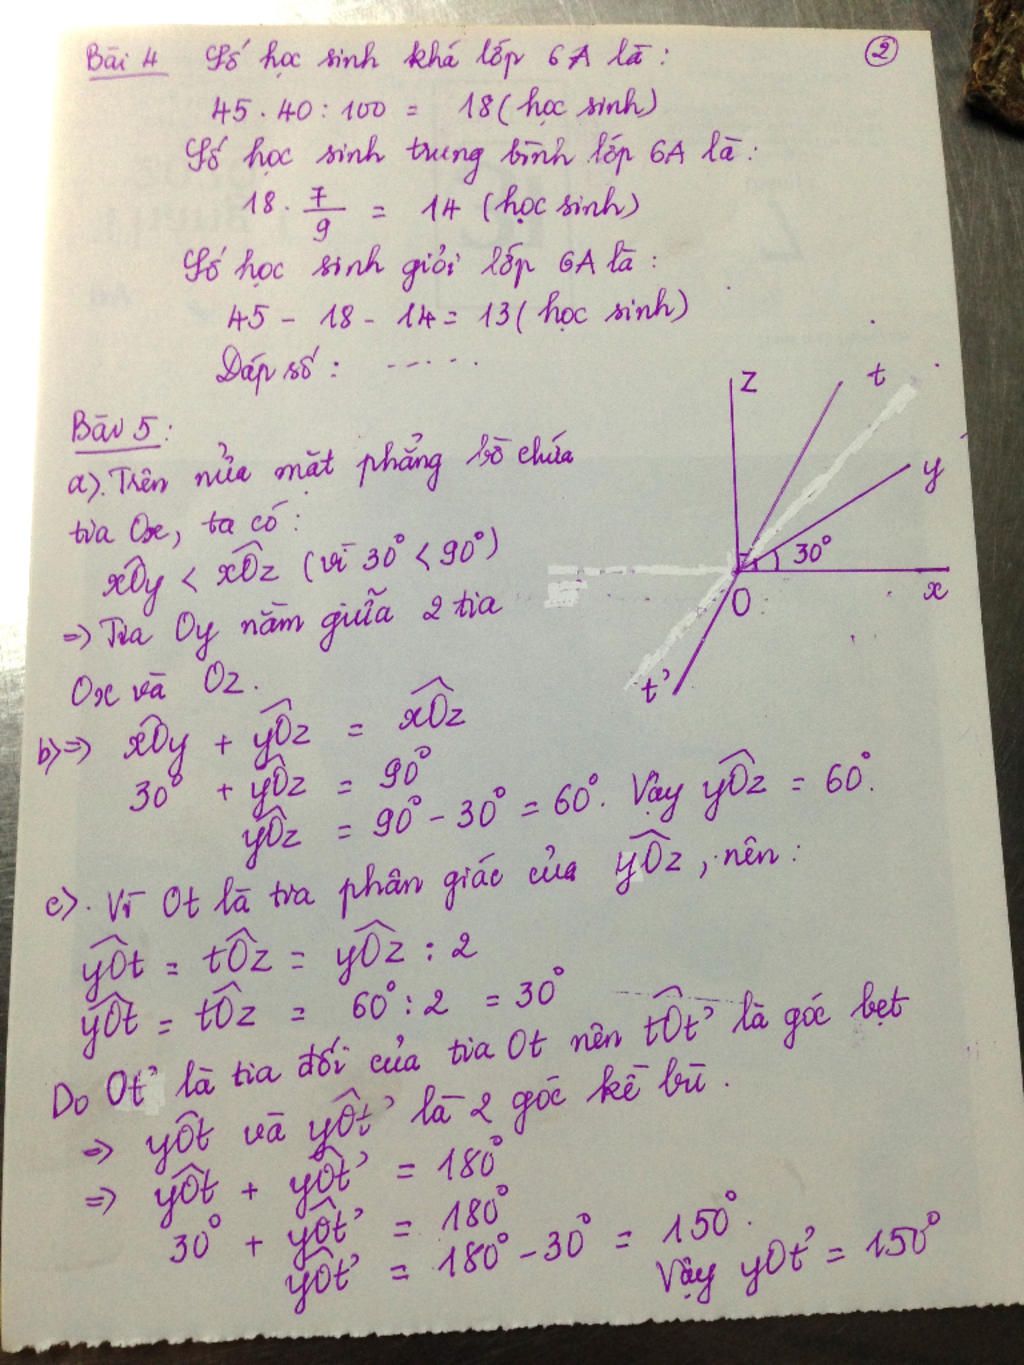 Bài 4 Số học sinh khá lớp 6A là: 2
45 . 40 : 100 = 18 (học sinh)
Số học sinh trung bình lớp 6A là:
18 . 7/9 = 14 (học sinh)
Số học sinh giỏi lớp 6A là:
45 - 18 - 14 = 13 (học sinh)
Đáp số: .....
Bài 5:
a). Trên nửa mặt phẳng bờ chứa
tia Ox, ta có:
xÔy < xÔz (vì 30° < 90°)
=> Tia Oy nằm giữa 2 tia
Ox và Oz.
z
t
y
30°
x
O
t'
b) => xÔy + yÔz = xÔz
30° + yÔz = 90°
yÔz = 90° - 30° = 60°. Vậy yÔz = 60°.
c). Vì Ot là tia phân giác của yÔz, nên:
yÔt = tÔz = yÔz : 2
yÔt = tÔz = 60° : 2 = 30°
Do Ot' là tia đối của tia Ot nên tÔt' là góc bẹt
=> yÔt và yÔt' là 2 góc kề bù.
=> yÔt + yÔt' = 180°
30° + yÔt' = 180°
yÔt' = 180° - 30° = 150°.
Vậy yOt' = 150°